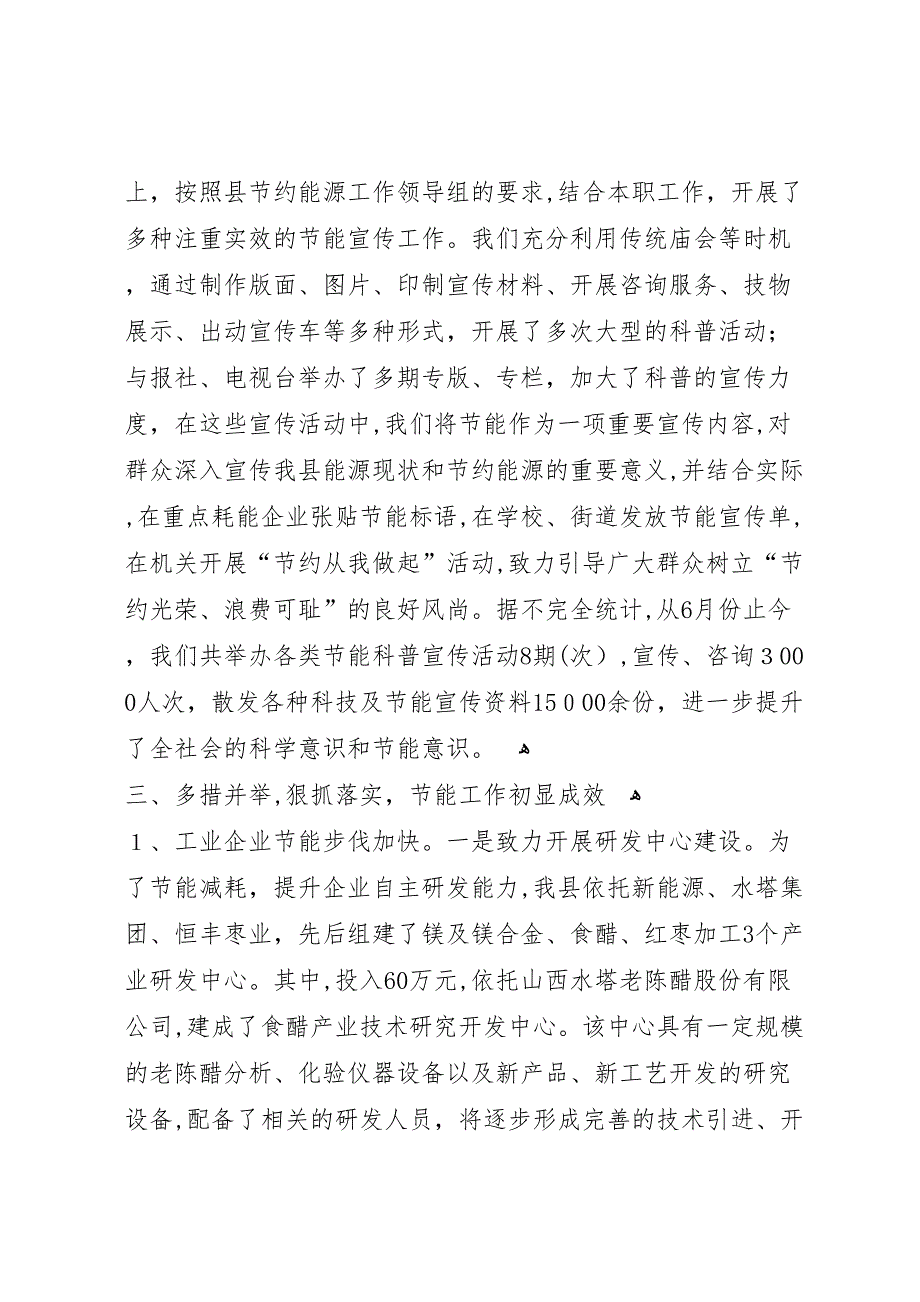 上，按照县节约能源工作领导组的要求,结合本职工作，开展了
多种注重实效的节能宣传工作。我们充分利用传统庙会等时机
，通过制作版面、图片、印制宣传材料、开展咨询服务、技物
展示、出动宣传车等多种形式，开展了多次大型的科普活动；
与报社、电视台举办了多期专版、专栏，加大了科普的宣传力
度，在这些宣传活动中,我们将节能作为一项重要宣传内容,对
群众深入宣传我县能源现状和节约能源的重要意义,并结合实际
,在重点耗能企业张贴节能标语,在学校、街道发放节能宣传单,
在机关开展“节约从我做起”活动,致力引导广大群众树立“节
约光荣、浪费可耻”的良好风尚。据不完全统计,从6月份止今
，我们共举办各类节能科普宣传活动8期(次）,宣传、咨询３00
0人次，散发各种科技及节能宣传资料15０00余份，进一步提升
了全社会的科学意识和节能意识。 ﻫ
三、多措并举,狠抓落实，节能工作初显成效 ﻫ
１、工业企业节能步伐加快。一是致力开展研发中心建设。为
了节能减耗，提升企业自主研发能力,我县依托新能源、水塔集
团、恒丰枣业，先后组建了镁及镁合金、食醋、红枣加工3个产
业研发中心。其中,投入60万元,依托山西水塔老陈醋股份有限
公司,建成了食醋产业技术研究开发中心。该中心具有一定规模
的老陈醋分析、化验仪器设备以及新产品、新工艺开发的研究
设备,配备了相关的研发人员，将逐步形成完善的技术引进、开